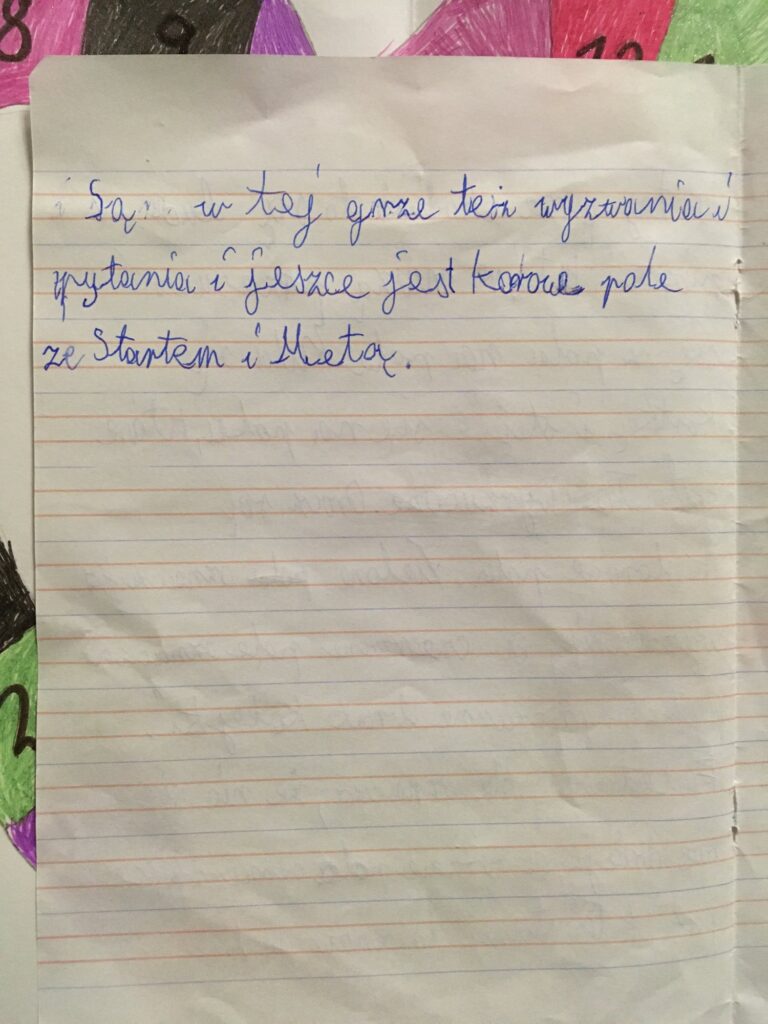 8 9 12
Są w tej grze też wyzwania i
pytania i jeszce jest kolorowe pole
ze Startem i Metą.
2